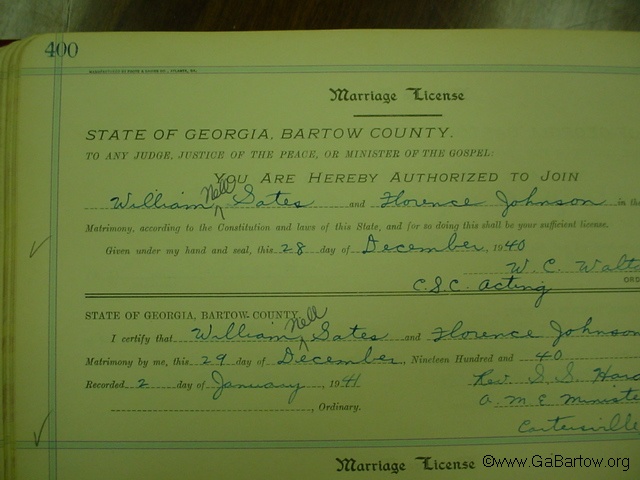 400
Marriage License
STATE OF GEORGIA, BARTOW COUNTY.
TO ANY JUDGE, JUSTICE OF THE PEACE, OR MINISTER OF THE GOSPEL:
YOU ARE HEREBY AUTHORIZED TO JOIN
William Nell Sates and Florence Johnson in
Matrimony, according to the Constitution and laws of this State, and for so doing this shall be your sufficient license.
Given under my hand and seal, this 28 day of December, 1940
W. C. Walt
C.S.C. acting ORD
STATE OF GEORGIA, BARTOW COUNTY.
I certify that William Nell Sates and Florence Johnson
Matrimony by me, this 29 day of December, Nineteen Hundred and 40
Recorded 2 day of January, 1941 Rev. S. S.
, Ordinary. A. M. E Ministe
Cartersville
Marriage License
©www.GaBartow.org